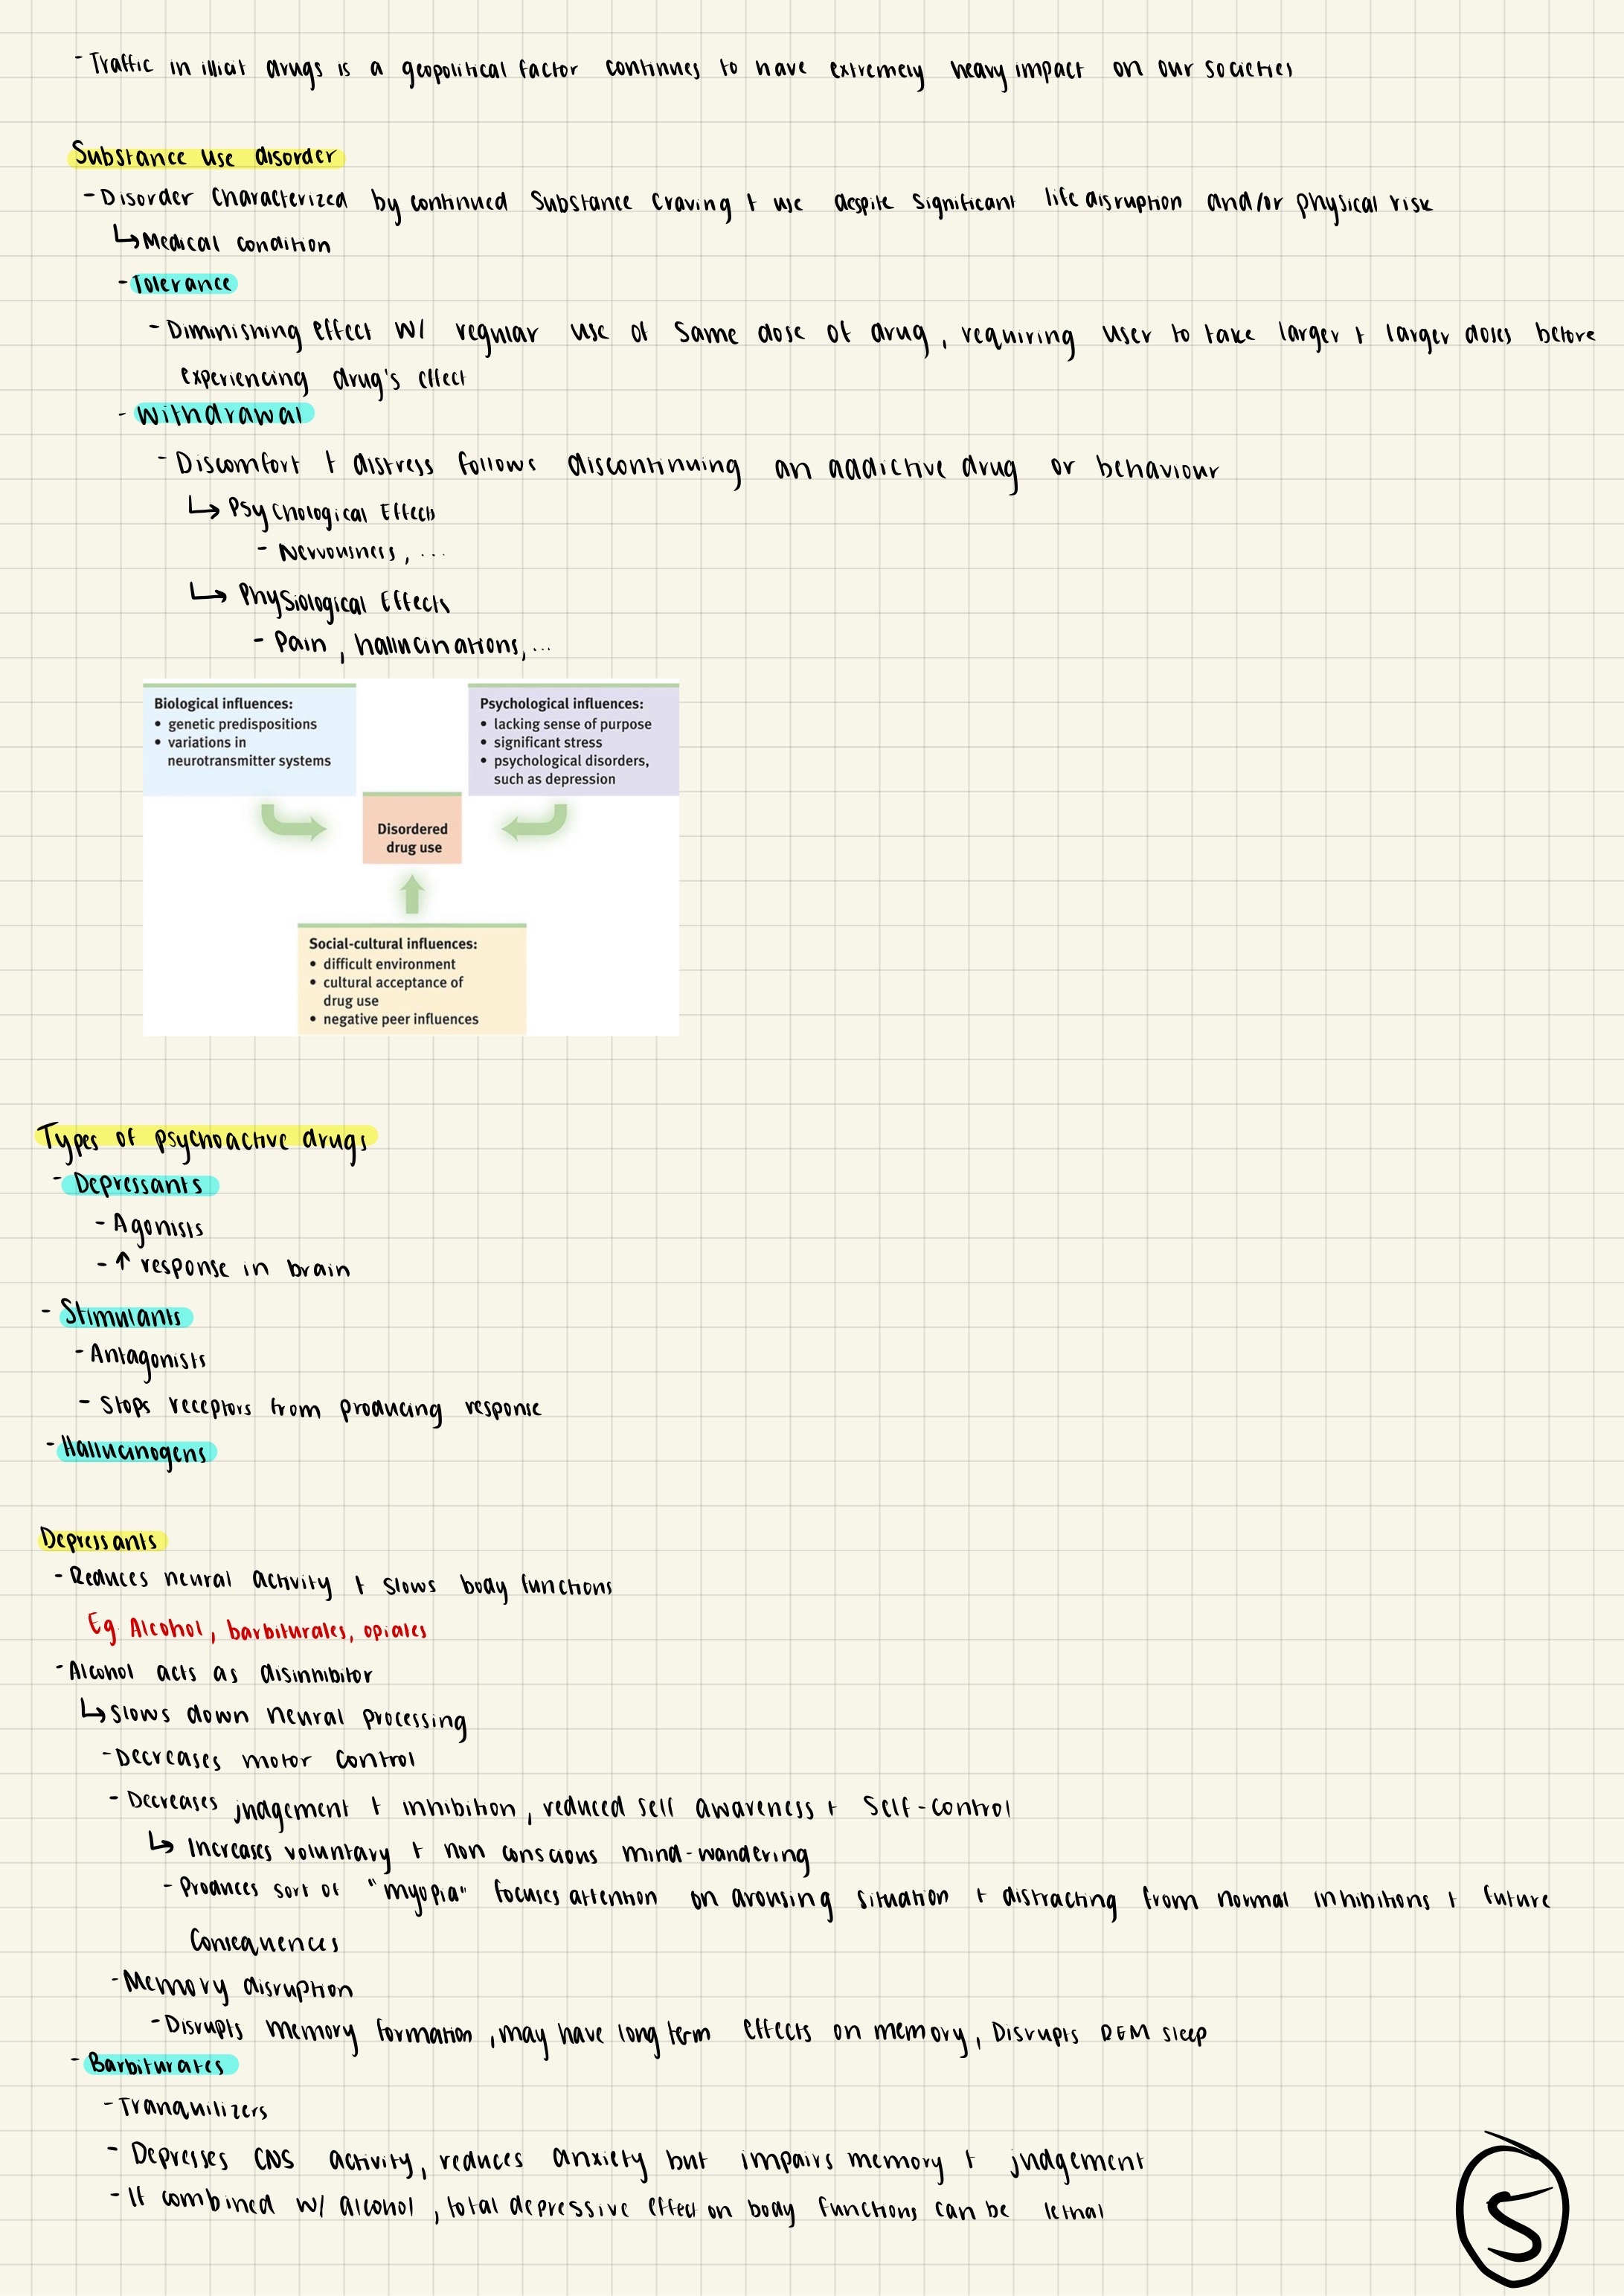 - Traffic in illicit drugs is a geopolitical factor continues to have extremely heavy impact on our societies
Substance use disorder
- Disorder characterized by continued substance craving + use despite significant life disruption and/or physical risk
↳ Medical condition
- Tolerance
- Diminishing effect w/ regular use of same dose of drug, requiring user to take larger + larger doses before
experiencing drug's effect
- Withdrawal
- Discomfort + distress follows discontinuing an addictive drug or behaviour
↳ Psychological Effects
- Nervousness, ...
↳ Physiological Effects
- Pain, hallucinations, ...
Biological influences:
• genetic predispositions
• variations in
neurotransmitter systems
Psychological influences:
• lacking sense of purpose
• significant stress
• psychological disorders,
such as depression
Disordered
drug use
Social-cultural influences:
• difficult environment
• cultural acceptance of
drug use
• negative peer influences
Types of psychoactive drugs
- Depressants
- Agonists
- ↑ response in brain
- Stimulants
- Antagonists
- Stops receptors from producing response
- Hallucinogens
Depressants
- Reduces neural activity + slows body functions
Eg. Alcohol, barbiturates, opiates
- Alcohol acts as disinhibitor
↳ Slows down neural processing
- Decreases motor control
- Decreases judgement + inhibition, reduced self awareness + self-control
↳ Increases voluntary + non conscious mind-wandering
- Produces sort of "myopia" focuses attention on arousing situation + distracting from normal inhibitions + future
consequences
- Memory disruption
- Disrupts memory formation, may have long term effects on memory, Disrupts REM sleep
- Barbiturates
- Tranquilizers
- Depresses CNS activity, reduces anxiety but impairs memory + judgement
- If combined w/ alcohol, total depressive effect on body functions can be lethal
5